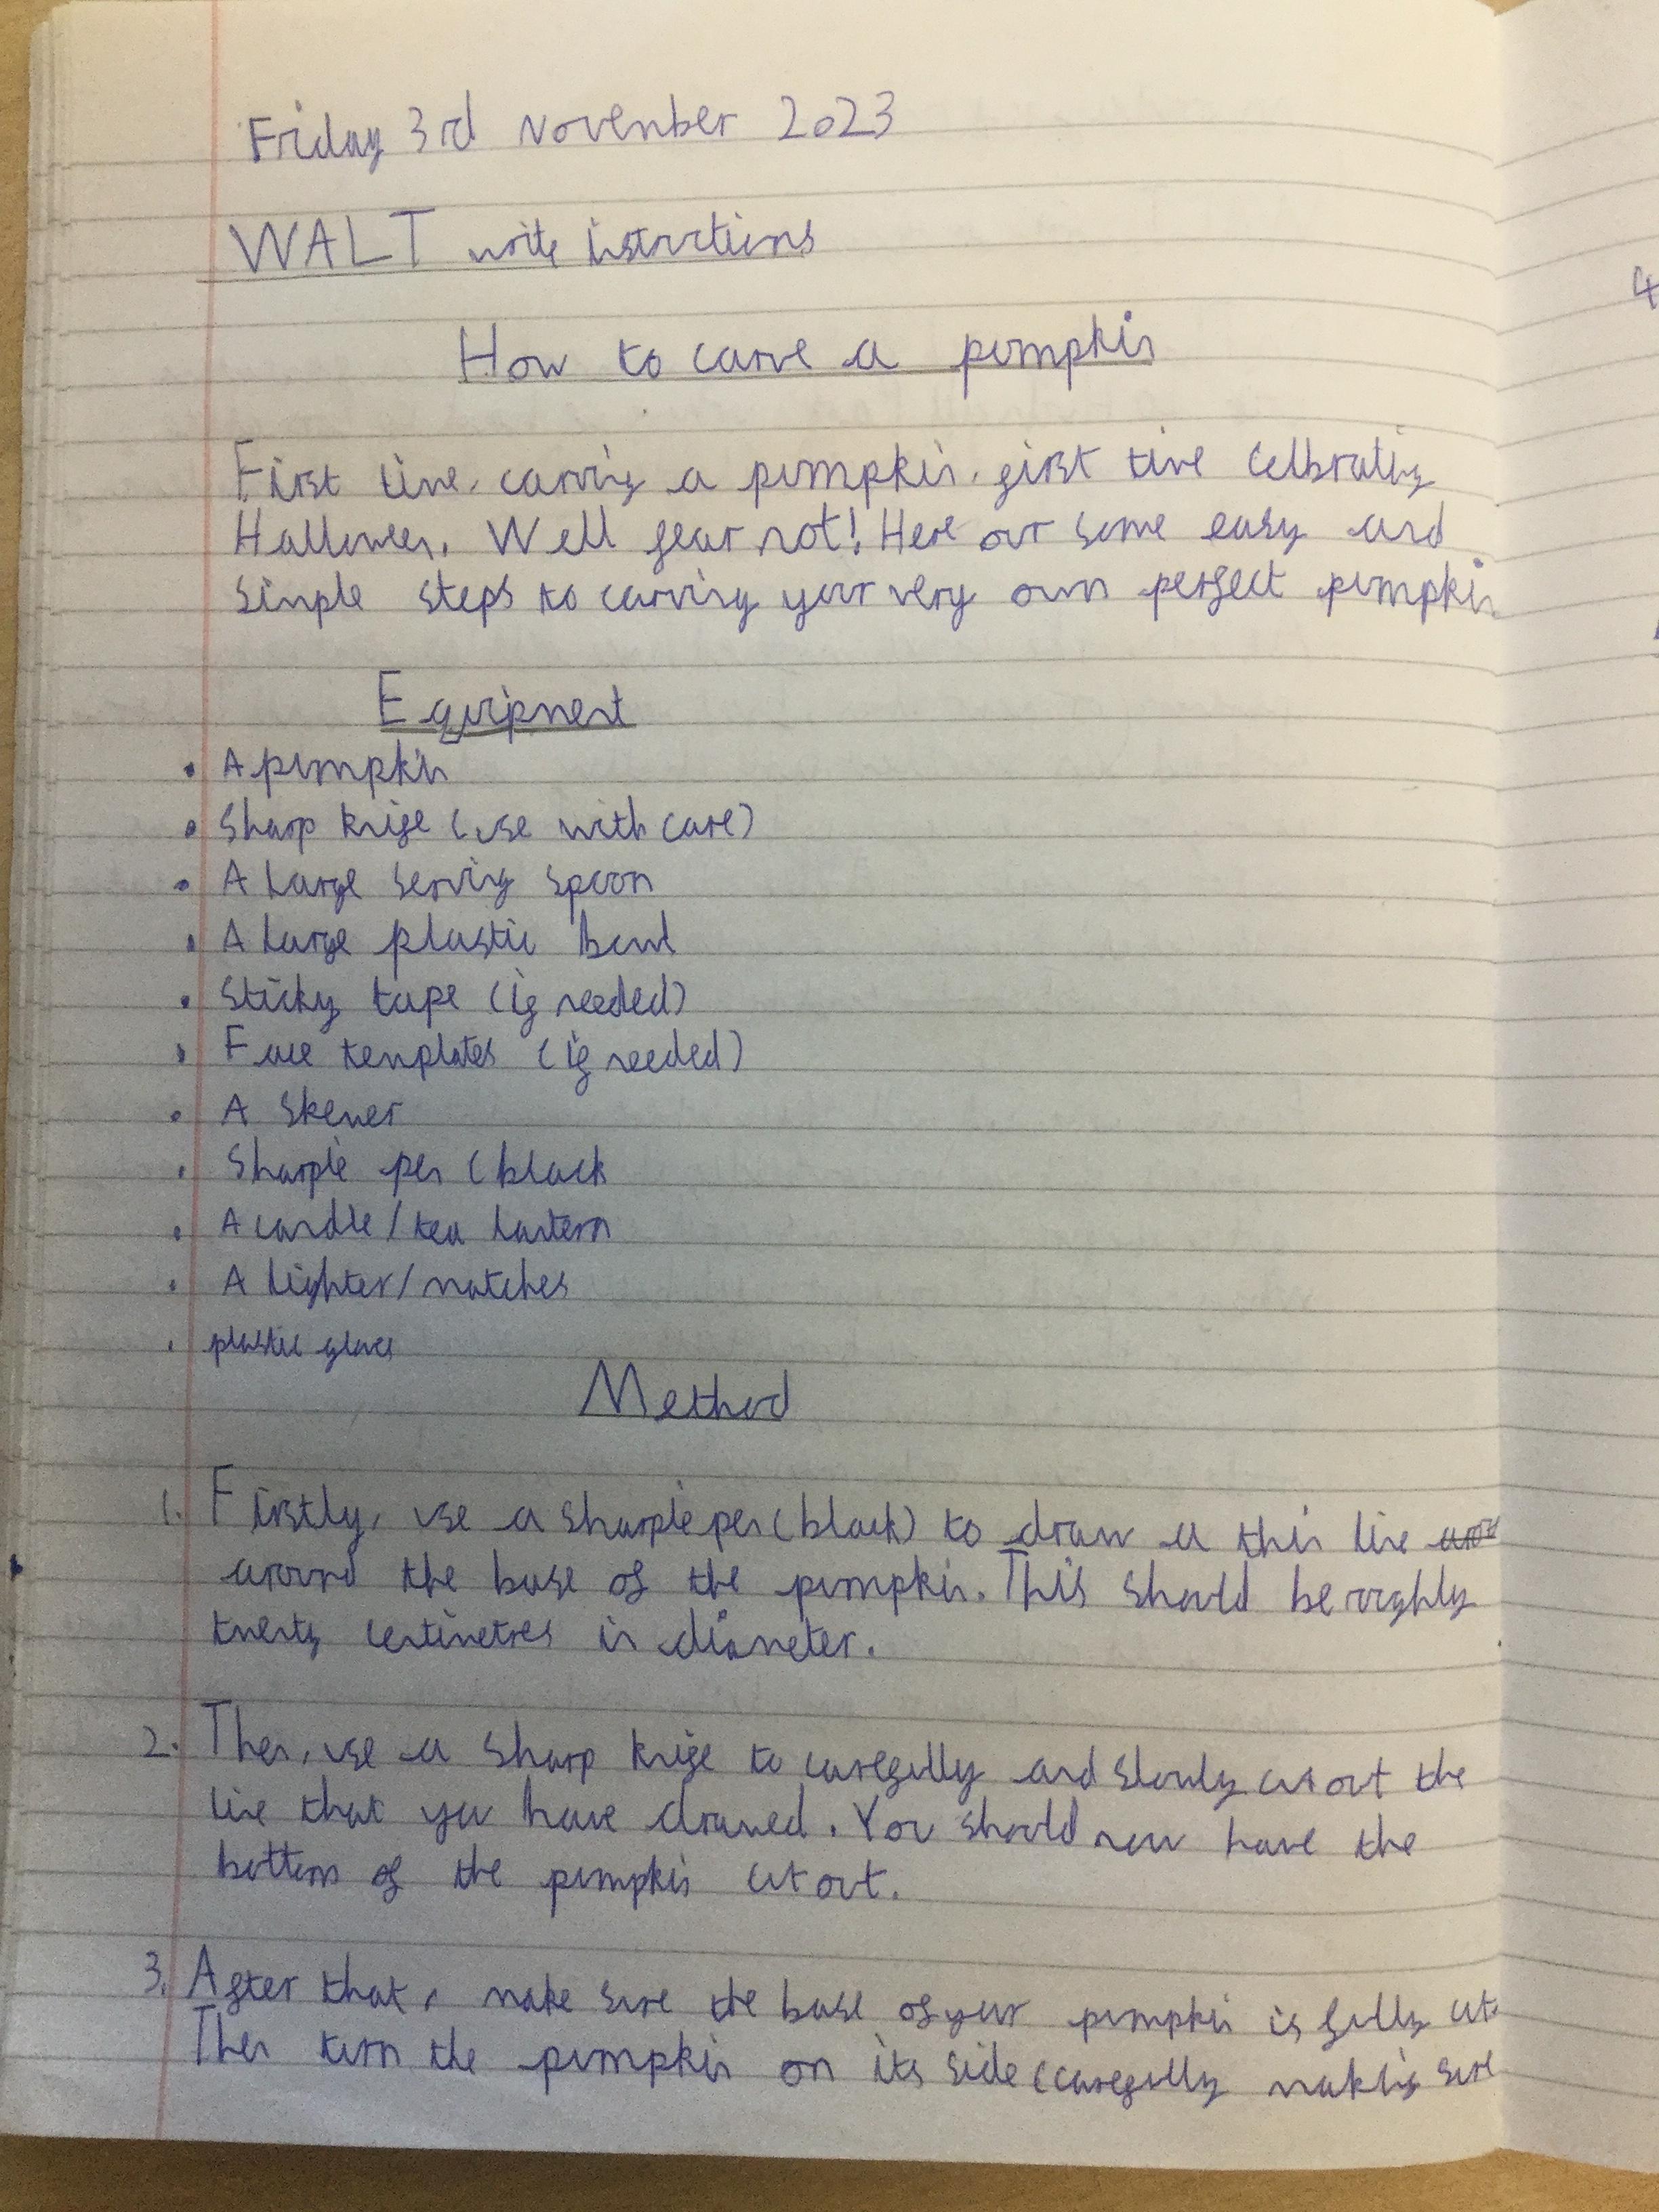 Friday 3rd November 2023
WALT write istructions
How to carve a pumpkin
First time, carving a pumpkin, first time celbrating
Halloween. Well fear not! Here our some easy and
simple steps to carving your very own perfect pumpkin
Equipment
• A pumpkin
• Sharp knife (use with care)
• A large serving spoon
• A large plastic bowl
• Sticky tape (if needed)
• Face templates (if needed)
• A skewer
• Sharpie pen (black
• A candle/tea lantern
• A lighter/matches
• plastic gloves
Method
1. Firstly, use a sharpie pen (black) to draw a thin line
around the base of the pumpkin. This should be roughly
twenty centimetres in diameter.
2. Then, use a sharp knife to carefully and slowly cut out the
line that you have drawed. You should now have the
bottom of the pumpkin cut out.
3. After that, make sure the base of your pumpkin is fully cut.
Then turn the pumpkin on its side (carefully making sure
4